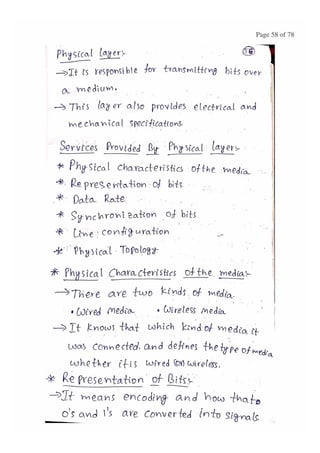 Page 58 of 78
Physical layer:-
→It is responsible for transmitting bits over
a medium.
→ This layer also provides electrical and
mechanical specifications.
Services Provided By Physical layer:-
* Physical characteristics of the media
* Representation of bits
* Data Rate
* Synchronization of bits
* Line configuration
* Physical Topology
* Physical Characteristics of the media:-
→There are two kinds of media.
• Wired Media • Wireless Media
→ It knows that which kind of media it
was connected. and defines the type of media
whether it is wired (or) wireless.
* Representation of Bits:-
→It means encoding and how that
0's and 1's are converted into signals